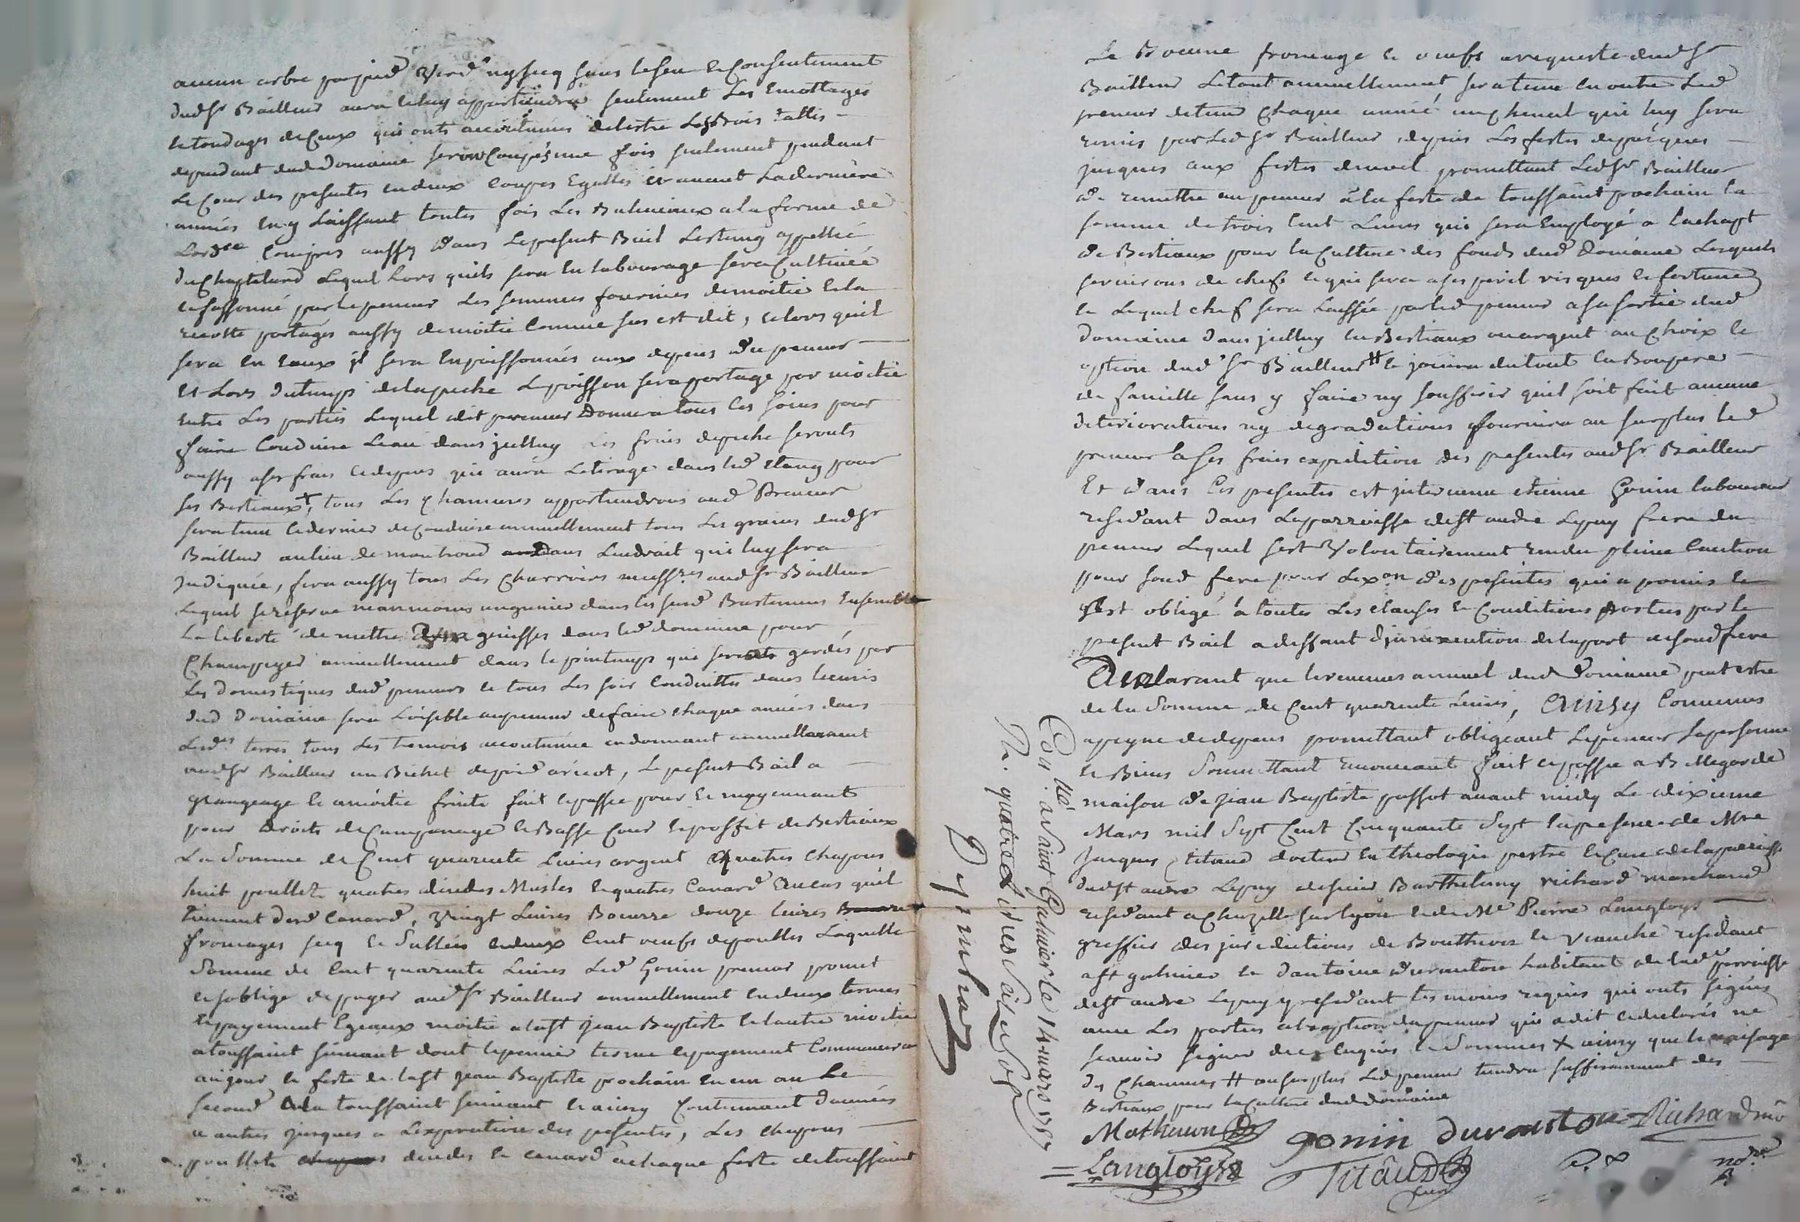 aucun arbre par pied verd ny secq sans le sceu et consentement
dudsr Bailleur aura et luy appartiendra seulement Les Emottages
et tondages de Ceux qui onts accoutumés delestre Les Bois tallis
dependant dud domaine seront Coupés une fois seulement pendant
Le Cour des presentes en deux Coupes Egalles et avant La derniere
année En y Laissant toutes fois Les Baliveaux a la forme de
Compris aussy dans Le present Bail Lestang appellé
du Chapteland Lequel Lors quils sera En labourage sera Cultivée
par le preneur Les semences fournies de moitié Et la
recolte partagés aussy de moitié Comme sus est dit, et lors quil
sera En Eaux il sera Enpoissonnés aux depens du preneur
Et Lors du temps de la peche Le poisson sera partagé par moitié
Entre Les parties Lequel dit preneur Donnera tous Les soins pour
faire Conduire L'eau dans jcelluy Les frais de peche seronts
aussy a ses frais et depens qui aura Letirage dans led Etang pour
ses Bestiaux, tous Les Chanvres appartiendrons aud Preneur
sera tenu Ce dernier de Conduire annuellement tous Les grains dudsr
Bailleur au lieu de dans Lendroit qui luy sera
Indiquée, fera aussy tous Les Charrois aud sr Bailleur
Lequel se reserve un grenier dans les susd Bastiments Ensemble
La liberté de mettre genisses dans led domaine pour
Champeyer annuellement dans le printemps qui seronts gardés par
Les domestiques dud preneur et tous Les soir Conduittes dans
dud Domaine sera Loisible au preneur de faire chaque années dans
Lesdes terres tous Les tremois accoutumée en donnant annuellement
audsr Bailleur un Bichet Le present Bail a
grangeage et a moitié fruits fait et passé pour et moyennant
pour droits de et Basse Cour et proffit de Bestiaux
La Somme de Cent quarente Livres argent quatres Chapons
huit poullets quatres dindes Masles et quatres Canard En cas quil
tiennent desd Canard, Vingt Livres Beurre douze Livres
fromages secq et Sallés Endeux Cent oeufs de poulles Laquelle
Somme de Cent quarente Livres Led Gonin preneur promet
et soblige de payer audsr Bailleur annuellement En deux termes
Et payement Egeaux moitié a la st Jean Baptiste Et lautre moitié
a toussaint suivant dont le premier terme et payement Commencera
au jour et feste de la st Jean Baptiste prochain En un an Le
second a la toussaint suivant Et ainsy Continuant d'années
a autres jusques a Lexpiration des presentes, Les Chapons
poullets dindes et canard a chaque feste de toussaint
Le Beurre fromage et oeufs a requeste dudsr
Bailleur Le tout annuellement sera tenu En outre Led
preneur de tenir Chaque année un Cheval qui luy sera
remis par Led sr Bailleur depuis Les festes de pasques
jusques aux festes de noel promettant Led sr Bailleur
de remettre au preneur à La feste de toussaint prochain la
somme de trois Cent Livres qui sera Employé a Lachapt
de Bestiaux pour la Culture des fonds dud Domaine Lesquels
servirons de chefs et qui sera a ses peril risques et fortune
Lequel chef sera Laissée par led preneur a sa sortie dud
domaine dans jcelluy En Bestiaux ou argent au Choix et
option dud sr Bailleur # et jouira du tout En Bon pere
de famille sans y faire ny souffrir quil soit fait aucune
deteriorations ny degradations fournira au surplus led
preneur a ses frais expedition des presentes audsr Bailleur
Et dans Les presentes est jntervenu etienne Gonin laboureur
residant dans La parroisse de st andré Le puy frere du
preneur Lequel sest Volontairement rendu pleine Caution
pour sond frere pour Lexon des presentes qui a promis et
sest obligé à toutes Les clauses et Conditions portées par le
present Bail a deffaut de la part de sond frere
Declarant que le revenus annuel dud Domaine peut estre
de la Somme de Cent quarente Livres, Ainsy Convenus
a peyne de depens promettant obligeant Le preneur sa personne
et Biens Soumettant renonceant fait et passé a
maison de Jean Baptiste passot avant midy Le dixieme
Mars mil Sept Cent Cinquante Sept En presence de Mre
Jacques titaud docteur En theologie prestre et Curé de la parroisse
dud st andré Le puy de sieur Barthelemy richard marchand
residant a Chazelle sur Lyon et de Me Pierre Langloys
greffier des juridictions de Boutheon et Veauche residant
a st galmier et d'antoine duranton habitant de lad parroisse
de st andré Le puy y residant tesmoins requis qui onts signés
avec Les parties a L'exeption du preneur qui a dit et declarés ne
scavoir signer de ce Enquis et Sommés X ainsy que le
des Chanvres # au surplus Led preneur tiendra suffisamment des
Bestiaux pour la Culture dud domaine
Mathevon gonin duranton Richard
Langloys titaud
Collé a Saint Galmier le 14 mars 1757
R. quatre Livres